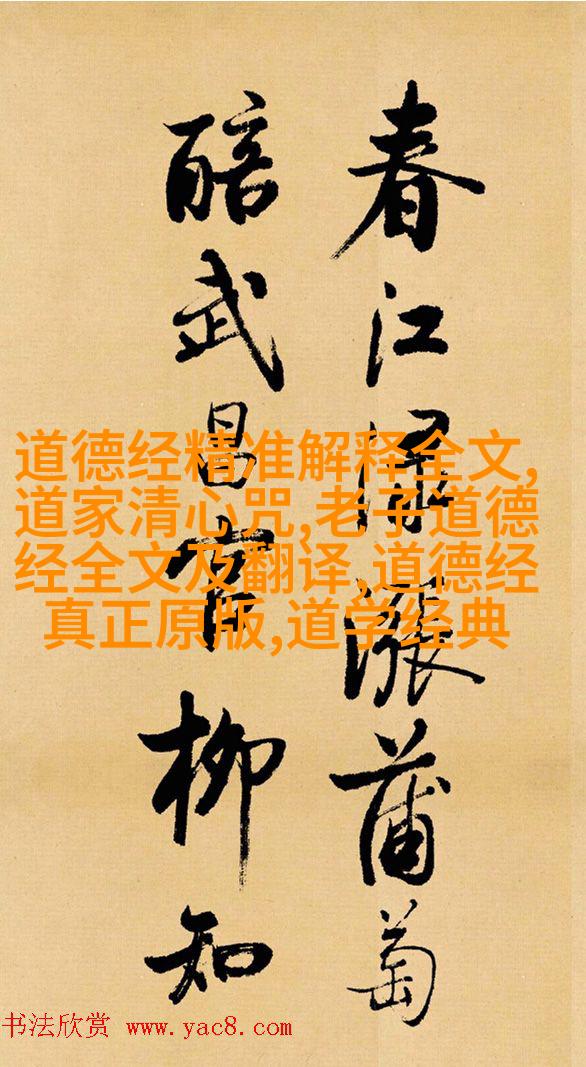 春江淥漲蒲萄
醅武昌官柳知
道德经精准解释全文,
道家清心咒,老子道德
经全文及翻译,道德经
真正原版,道学经典
书法欣赏 www.yac8.com